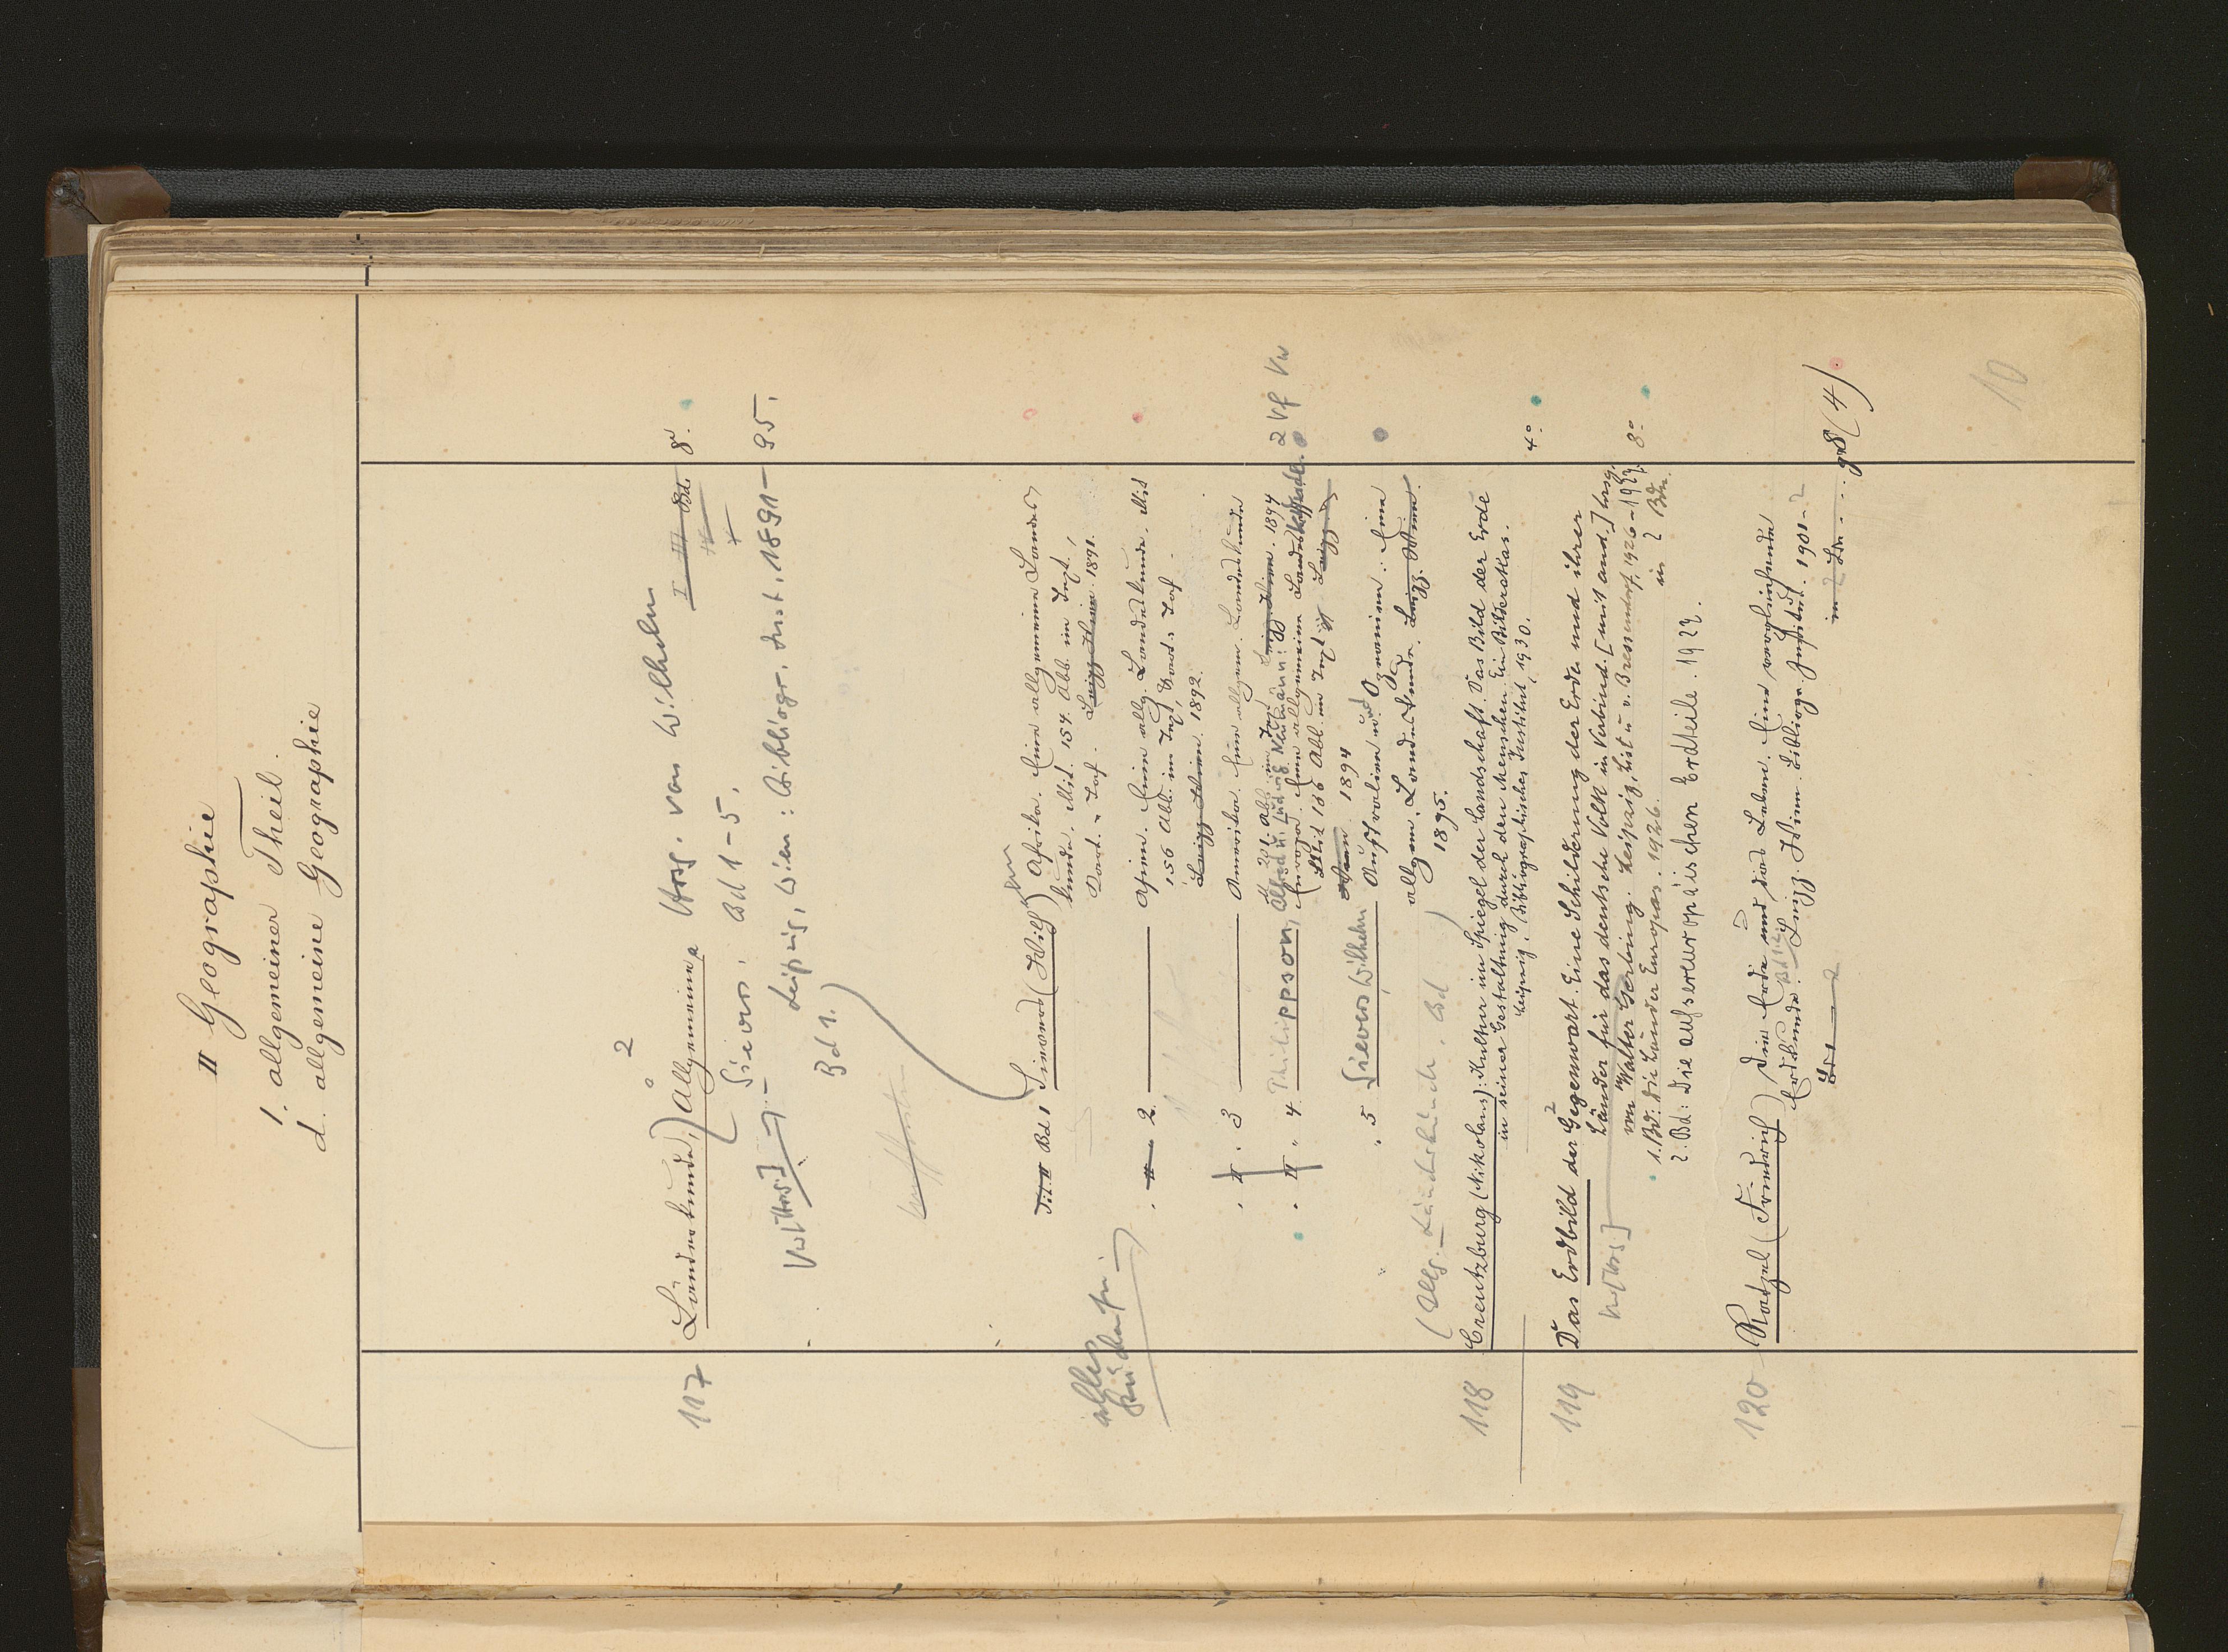 II Geographie
1. allgemeiner Theil.
d. allgemeine Geographie
117 Länderkunde, Allgemeine Hrsg. von Wilhelm I–III Bd. 8°.
Sievers. Bd 1–5.
Leipzig, Wien: Bibliogr. Inst. 1891–95.
Bd 1.
Bd 1 Sievers (Wilh.) Afrika. Eine allgemeine Landes-
kunde. Mit 154 Abb. im Text,
Leipz. Wien 1891.
2 — Asien. Eine allg. Landeskunde. Mit
156 Abb. im Text,
Leipz. Wien. 1892.
3 — Amerika. Eine allgem. Landeskunde
Mit 201 Abb. im Text. Leipz. Wien. 1894
4 Philippson, Alfred u. Ludwig Neumann: 2 Vf Vw
Europa. Eine allgemeine Landeskunde.
Mit 166 Abb. im Text Leipz.
Wien 1894
5 Sievers, Wilhelm Australien und Ozeanien. Eine
allgem. Landeskunde. Leipz. Wien.
1895.
(Allg. Länderkunde. Bd )
118 Creutzburg (Nikolaus): Kultur im Spiegel der Landschaft. Das Bild der Erde
in seiner Gestaltung durch den Menschen. Ein Bilderatlas.
Leipzig, Bibliographisches Institut, 1930. 4°.
119 Das Erdbild der Gegenwart. Eine Schilderung der Erde und ihrer
Länder für das deutsche Volk in Verbind. [mit and.] hrsg.
von Walter Gerbing. Leipzig, List u. v. Bressensdorf, 1926–1927. 8°
in 2 Bdn.
1. Bd: Die Länder Europas. 1926.
2. Bd: Die aussereuropäischen Erdteile. 1927.
120 Ratzel (Friedrich) Die Erde und das Leben. Eine vergleichende
Erdkunde. Leipz. Wien. Bibliogr. Institut. 1901–2
in 2 Bdn. gr8 (4)
10